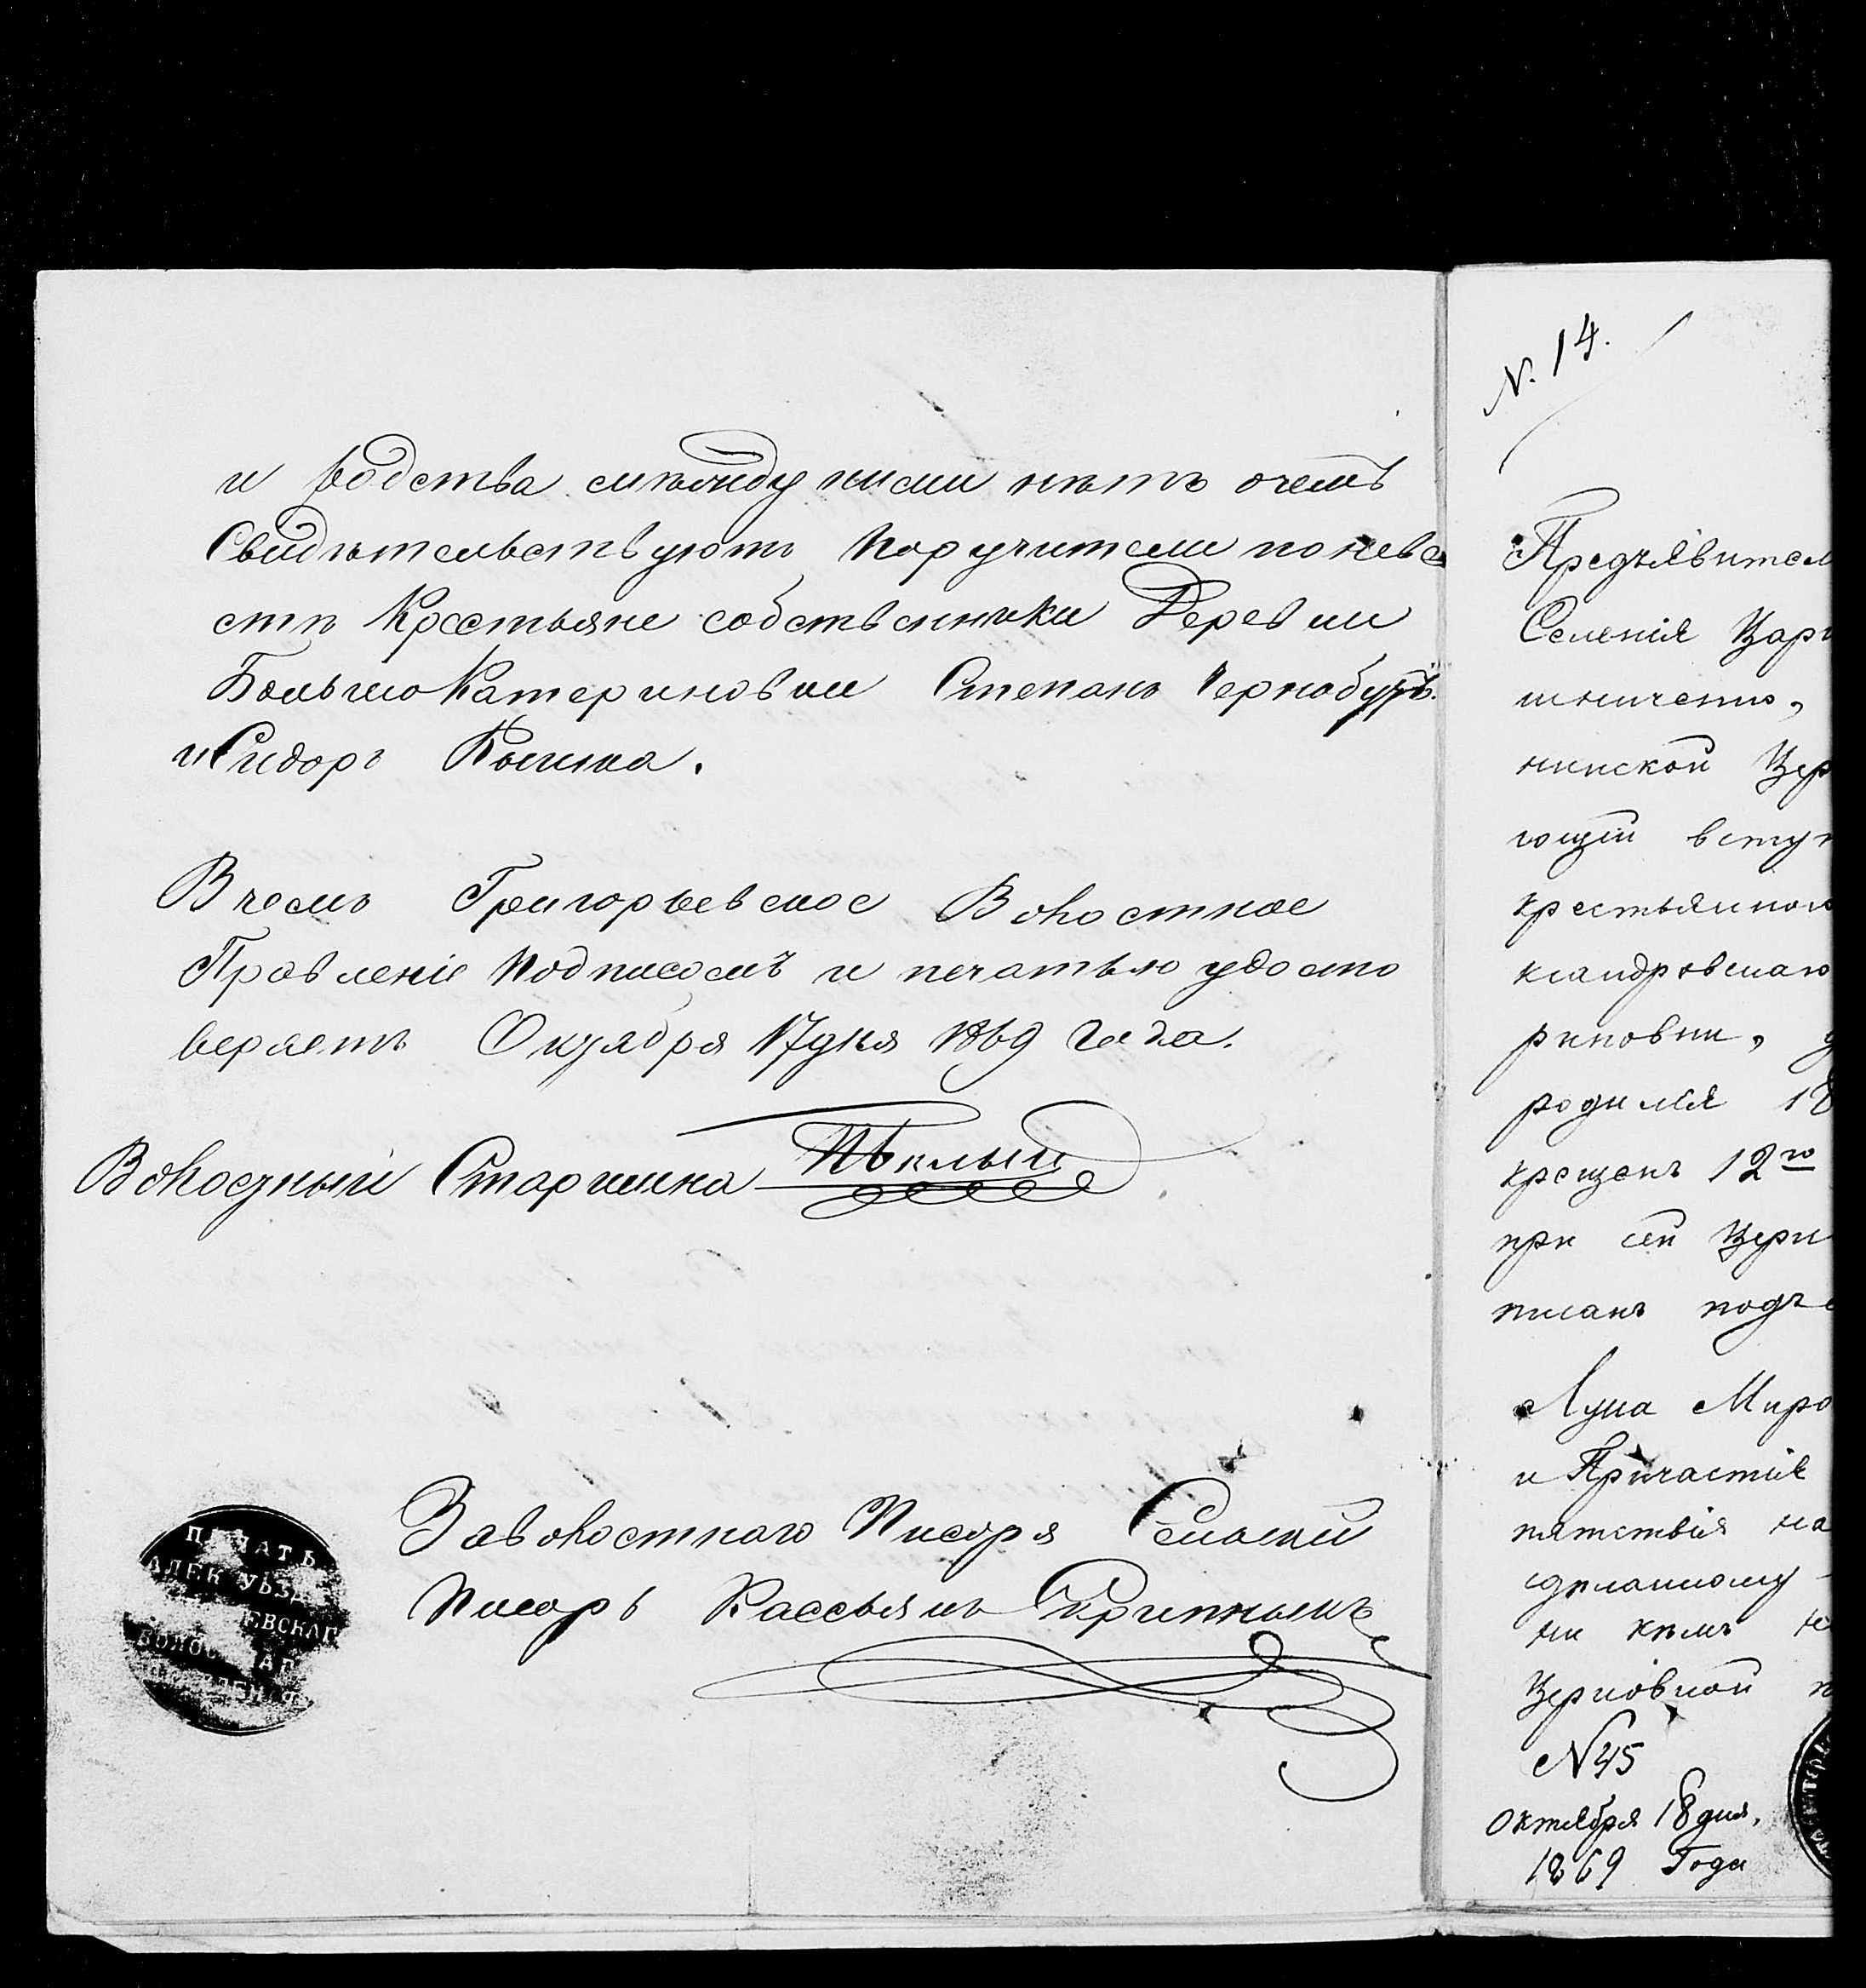 и родства смежду ними нѣтъ очемъ
Свидѣтельствуютъ поручители поневе
сти Крестьяне собственники Деревни
Большо Катериновки Степанъ Чернобуръ
и Сидоръ
Вчемъ Григорьевское Волостное
Правленіе подписомъ и печатью удосто
веряетъ Октября 17 дня 1869 Года.
Волостный Старшина
За волостнаго Писаря Сельскій
Писарь Кассьянъ
ПЕЧАТЬ
АЛЕК УѢЗД
ЕВСКАГ
ВОЛОС АГ
N. 14.
Предъявител
Селенія Цари
шниченко,
нинской Цер
ющій вступ
крестьянкою
ксандровскаго
риновки, д
родился 18
крещенъ 12го
при сей Церк
писанъ подъ
Лука Миро
и Причастія
пятствія на
сдѣланному
ни кѣмъ не
Церковной п
N 45
Октября 18 дня,
1869 Года